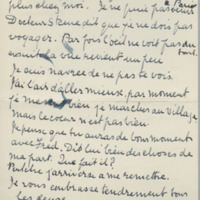 plus chez moi. Je ne puis
à Paris
Docteur dit que je ne dois pas
voyager. Par fois l'œil ne voit pas du
tout
la vue revient un peu
Je suis navrée de ne pas te voir
J'ai l'air d'aller mieux, par moment
je me bien je marche au village
Mais le cœur n'est pas bien.
Je pense que tu auras de bons moments
avec Fred. Dis lui bien des choses de
ma part. Que fait il?
Peut être j'arriverai a me remettre.
Je vous embrasse tendrement tous
Les deux